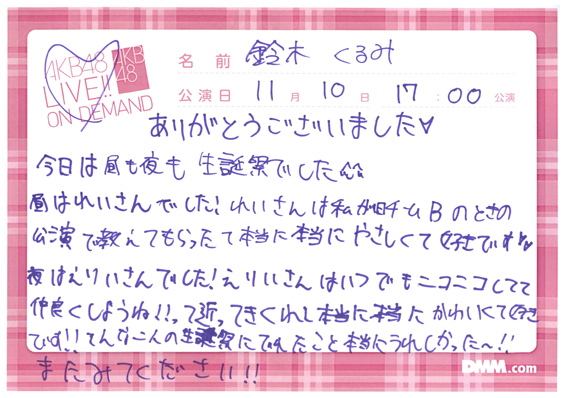 AKB48
LIVE!!
ON DEMAND
AKB
48
名前 鈴木 くるみ
公演日 11月 10日 17:00 公演
ありがとうございました♥
今日は昼も夜も 生誕祭でした
昼はれいさんでした! れいさんは私が旧チームBのときの
公演で教えてもらったて本当に本当にやさしくて好きです
夜はえりいさんでした! えりいさんはいつでもニコニコしてて
仲良くしようね!!って近ってきくれし本当に本当にかわいくて好き
です!! そんな二人の生誕祭にでれたこと本当にうれしかった〜!!
またみてください!!
DMM.com